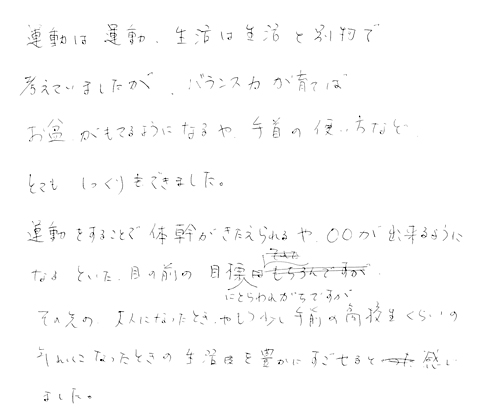 運動は運動、生活は生活と別物で
考えていましたが、バランス力が育てば
お盆がもてるようになるや、手首の使い方など
とても しっくりきできました。
運動をすることで体幹がきたえられるや、〇〇が出来るように
なる といった、目の前の目標
にとらわれがちですが
その先の、大人になったとき、やもう少し手前の高校生くらいの
年れいになったときの生活を豊かにすごせると感じ
ました。